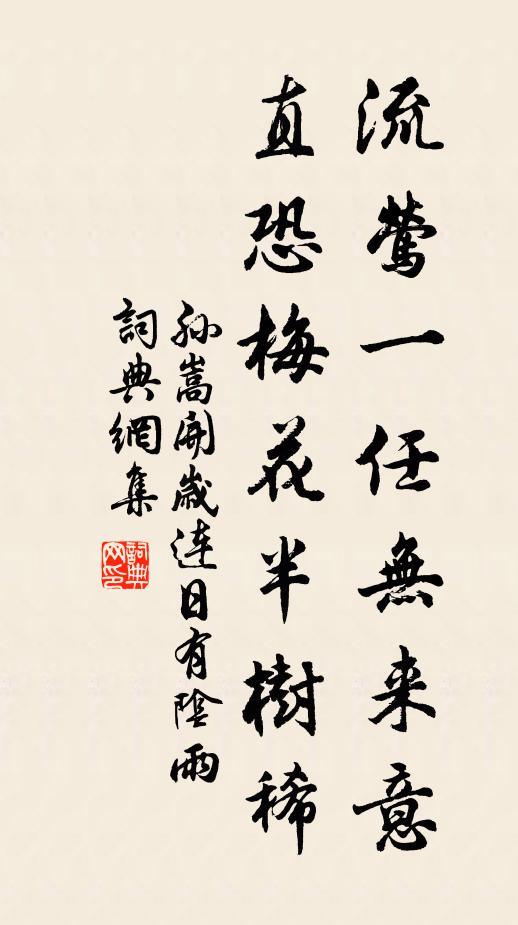 流莺一任無来意
直恐梅花半樹稀
孙嵩開歲连日有陰雨
詞典網集
詞典网印